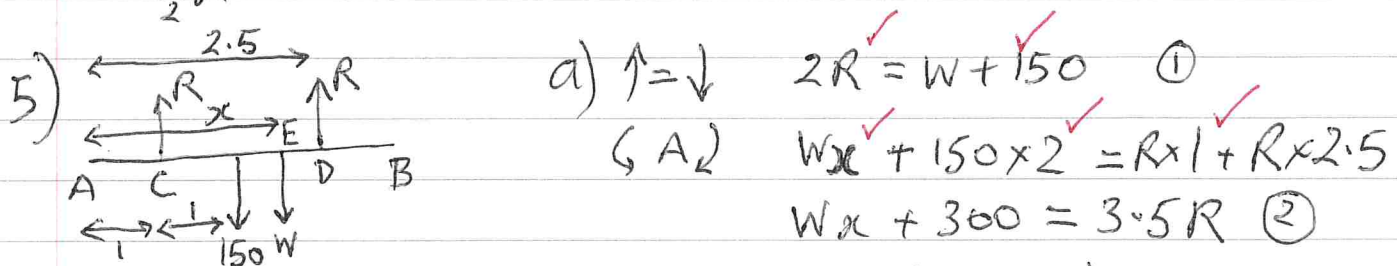 2
5)
2.5
R
x
R
E
A C D B
1
1
150 W
a) ↑=↓ 2R = W + 150 ①
↺A↻ Wx + 150×2 = R×1 + R×2.5
Wx + 300 = 3.5R ②